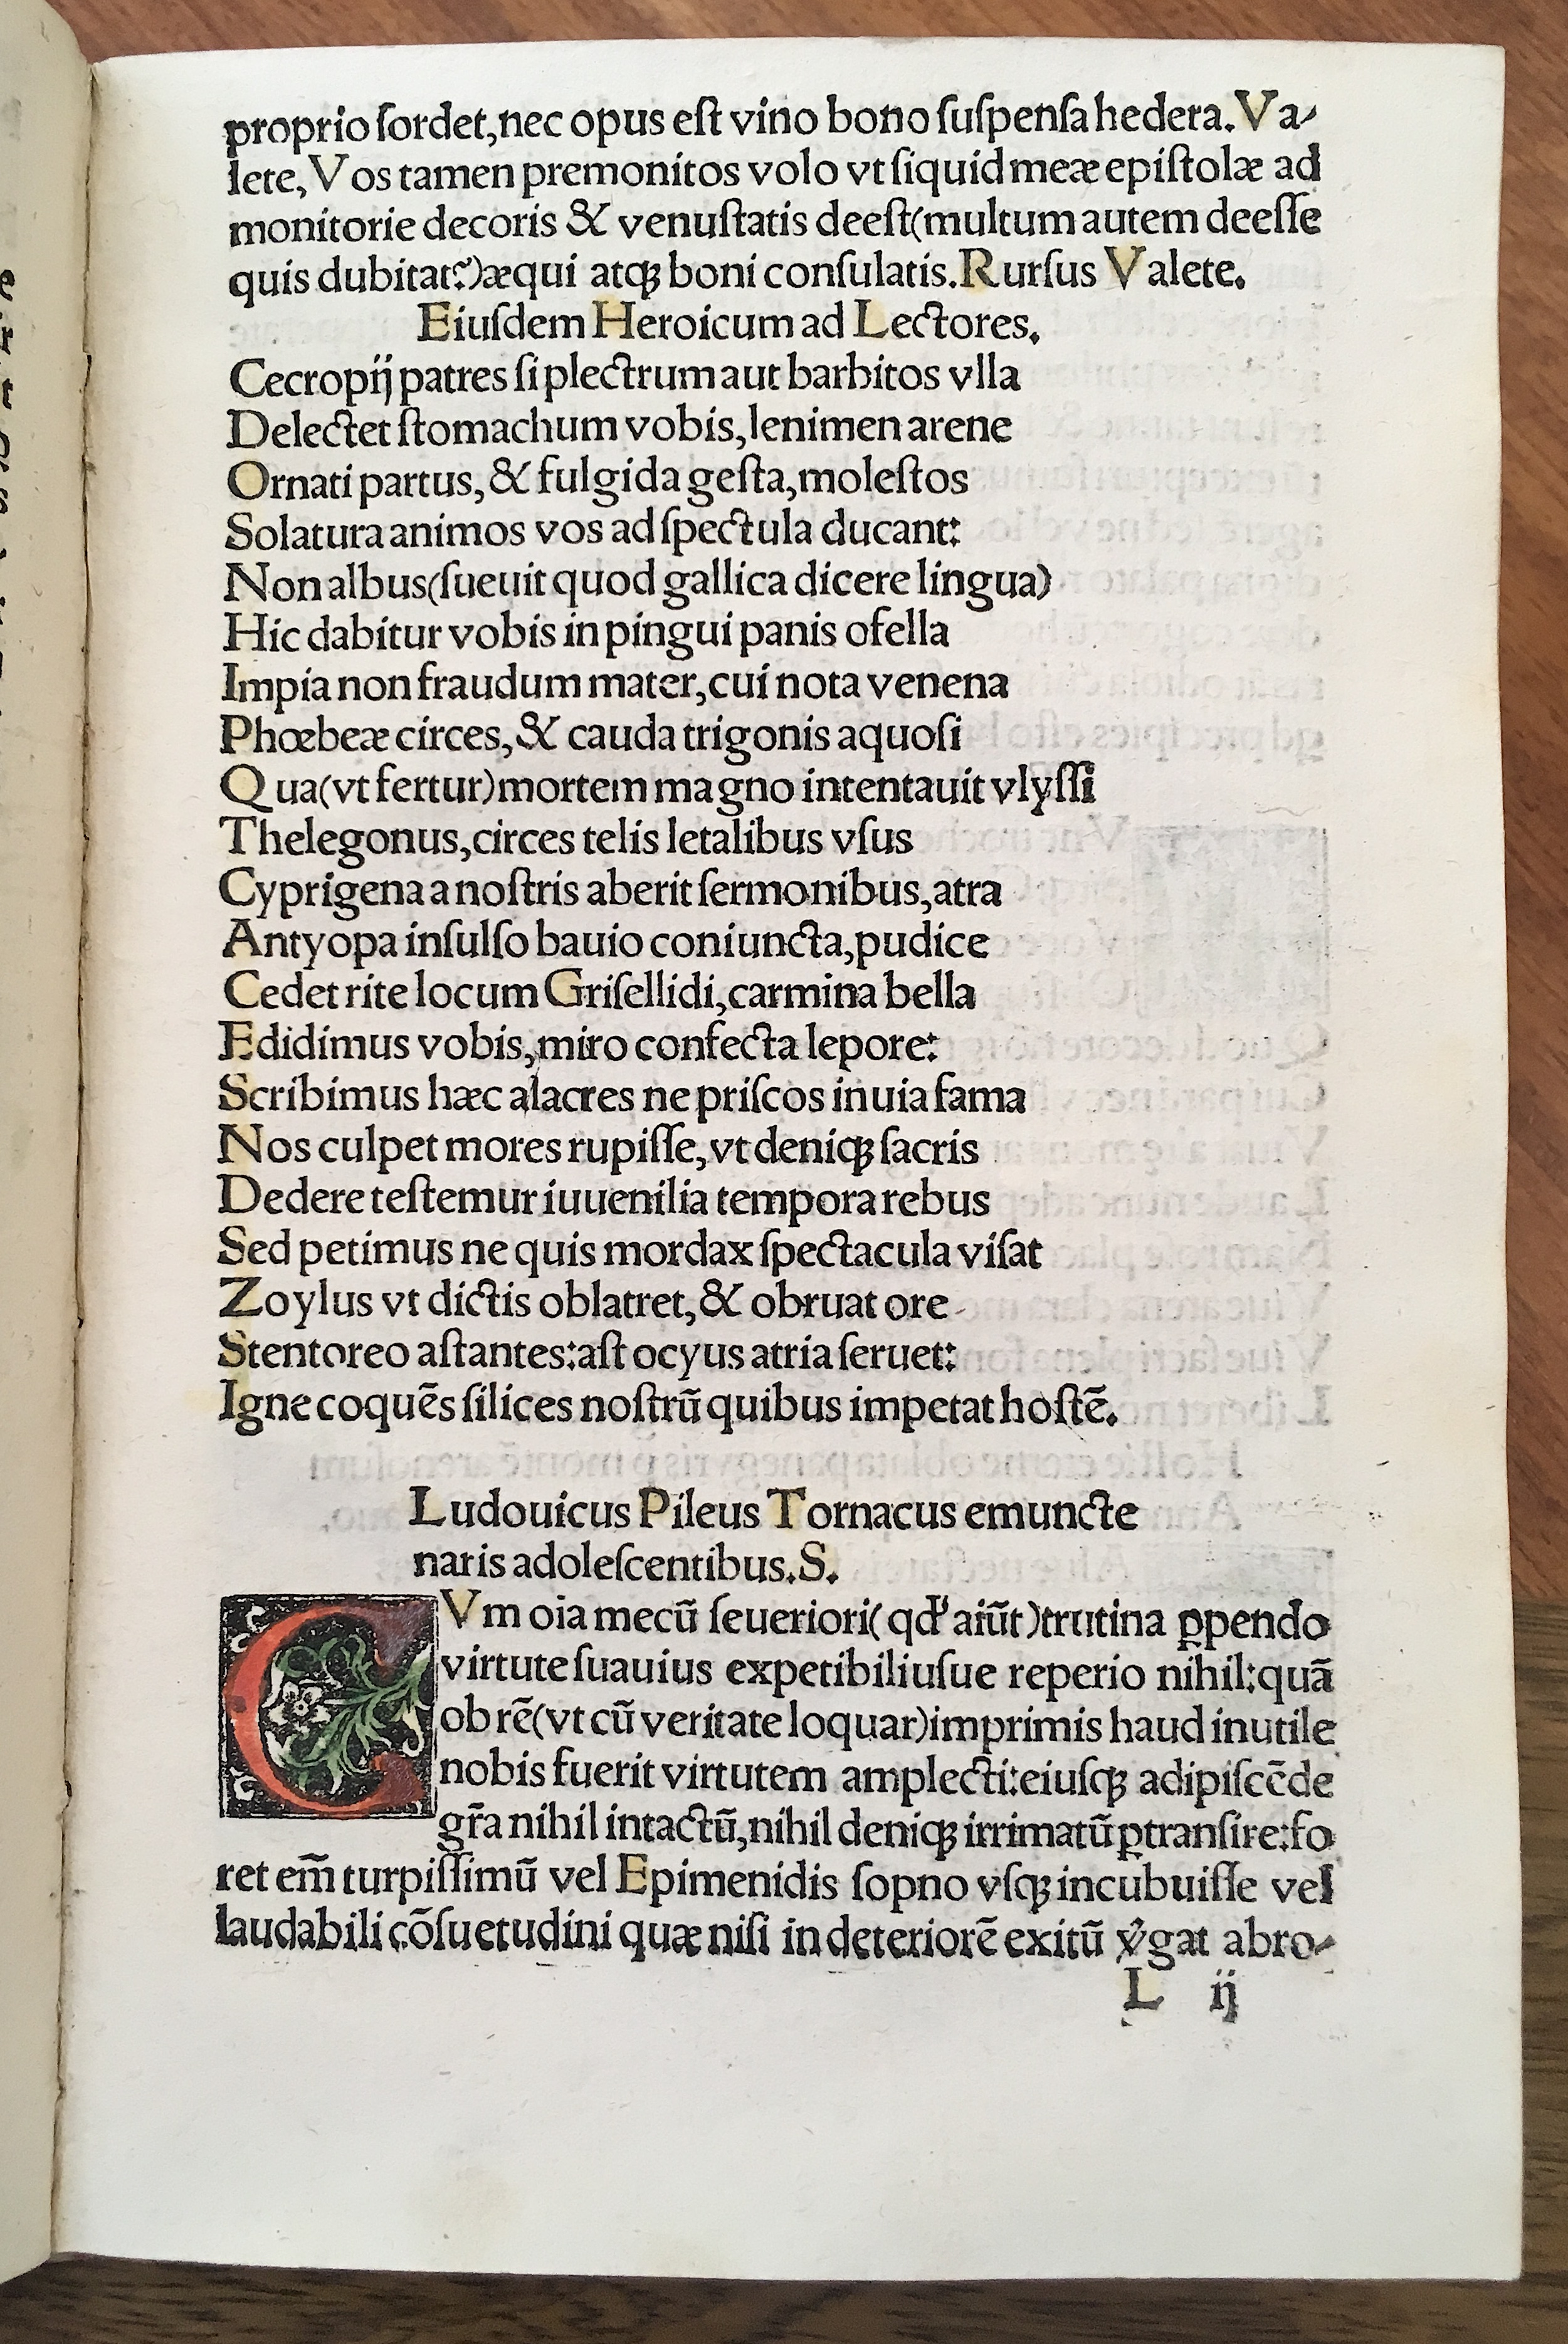 proprio ſordet,nec opus eſt vino bono ſuſpenſa hedera.Va⸗
lete,Vos tamen premonitos volo vt ſiquid meæ epiſtolæ ad
monitorie decoris & venuſtatis deeſt(multum autem deeſſe
quis dubitat?)æqui atqꝫ boni conſulatis.Rurſus Valete.
Eiuſdem Heroicum ad Lectores.
Cecropij patres ſi plectrum aut barbitos vlla
Delectet ſtomachum vobis,lenimen arene
Ornati partus,& fulgida geſta,moleſtos
Solatura animos vos ad ſpectula ducant:
Non albus(ſueuit quod gallica dicere lingua)
Hic dabitur vobis in pingui panis ofella
Impia non fraudum mater,cui nota venena
Phœbeæ circes,& cauda trigonis aquoſi
Qua(vt fertur)mortem magno intentauit vlyſſi
Thelegonus,circes telis letalibus vſus
Cyprigena a noſtris aberit ſermonibus,atra
Antyopa inſulſo bauio coniuncta,pudice
Cedet rite locum Griſellidi,carmina bella
Edidimus vobis,miro confecta lepore:
Scribimus hæc alacres ne priſcos inuia fama
Nos culpet mores rupiſſe,vt deniqꝫ ſacris
Dedere teſtemur iuuenilia tempora rebus
Sed petimus ne quis mordax ſpectacula viſat
Zoylus vt dictis oblatret,& obruat ore
Stentoreo aſtantes:aſt ocyus atria ſeruet:
Igne coquẽs ſilices noſtrũ quibus impetat hoſtẽ.
Ludouicus Pileus Tornacus emuncte
naris adoleſcentibus.S.
CVm oia mecũ ſeueriori(qd' aiũt)trutina ꝑpendo
virtute ſuauius expetibiliuſue reperio nihil:quã
ob rẽ(vt cũ veritate loquar)imprimis haud inutile
nobis fuerit virtutem amplecti:eiuſqꝫ adipiſcẽde
gr̃a nihil intactũ,nihil deniqꝫ irrimatũ ꝑtranſire:fo
ret em̃ turpiſſimũ vel Epimenidis ſopno vſqꝫ incubuiſſe vel
laudabili cõſuetudini quæ niſi in deteriorẽ exitũ v̓gat abro⸗
L ij